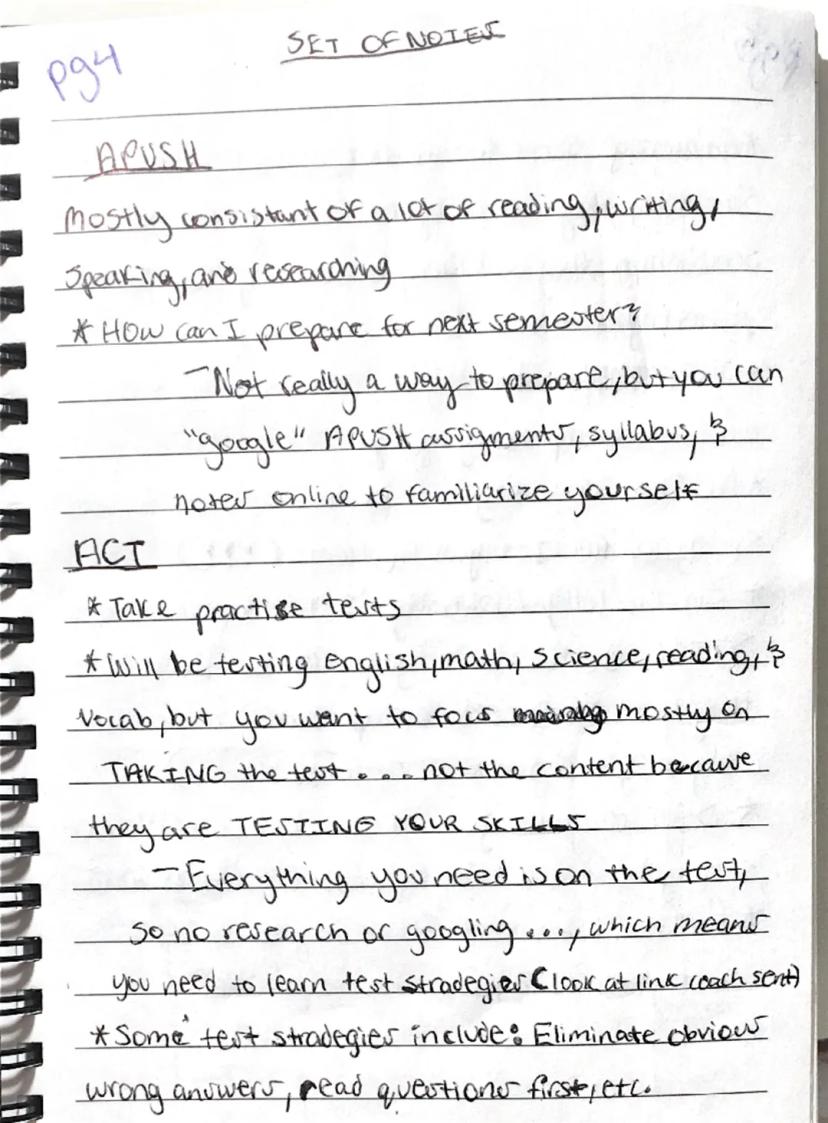 SET OF NOTES
pg4
APUSH
Mostly consistant of a lot of reading, writing,
speaking, and researching
* How can I prepare for next semester?
- Not really a way to prepare, but you can
"google" APUSH assigments, syllabus, &
notes online to familiarize yourself
ACT
* Take practise tests
* Will be testing English, math, science, reading, &
vocab, but you want to focs mostly on
TAKING the test .... not the content because
they are TESTING YOUR SKILLS
- Everything you need is on the test,
so no research or googling ..., which means
you need to learn test stradegies (look at link coach sent)
* Some test stradegies include: Eliminate obvious
wrong answers, read questions first, etc.